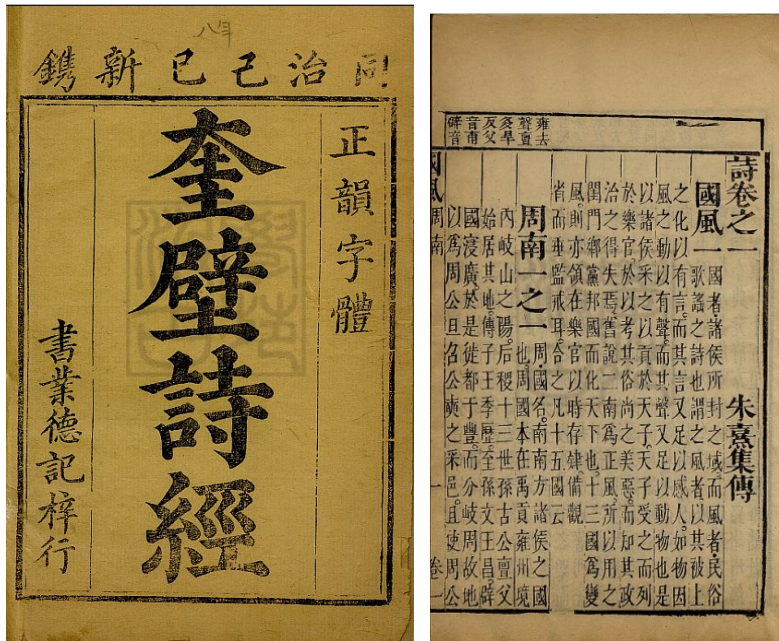 同治己巳新鐫
正韻字體
奎壁詩經
書業德記梓行
雍去
聲亶
反父
音甫
詩卷之一 朱熹集傳
國風一 國者諸侯所封之域而風者民俗
歌謠之詩也謂之風者以其被上
之化以有言。而其言又足以感人。如物因
風之動以有聲。而其聲又足以動物也是
以諸侯采之以貢於天子。天子受之而列
於樂官。於以考其俗尚之美惡。而知其政
治之得失焉。舊說二南爲正風。所以用之
閨門鄉黨邦國而化天下也。十三國爲變
風。則亦領在樂官以時存肄備觀
省而垂監戒耳。合之凡十五國云
周南一之一 周。國名。南。南方諸侯之國
也。周國本在禹貢雍州境
內岐山之陽。后稷十三世孫古公亶父
始居其地。傳子王季歷。至孫文王昌。辟
國寖廣。於是徙都于豐。而分岐周故地
以爲周公旦召公奭之采邑。且使周公
國風周南 一 卷一